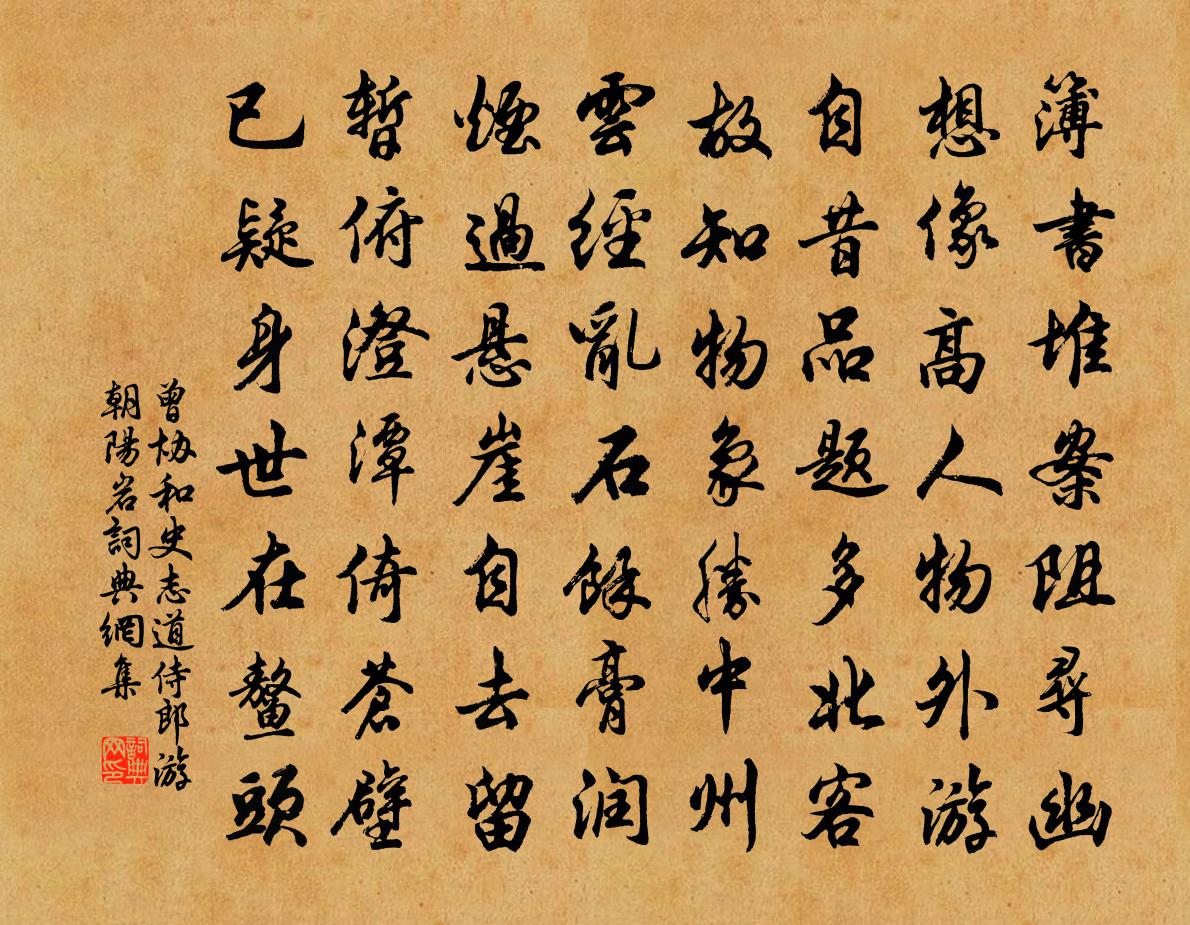 簿書堆案阻尋幽
想像高人物外游
自昔品題多北客
故知物象勝中州
雲經亂石餘膏润
煙過悬崖自去留
暫俯澄潭倚蒼壁
已疑身世在鳌頭
曾协和史志道侍郎游
朝陽岩詞典網集
詞典
网印